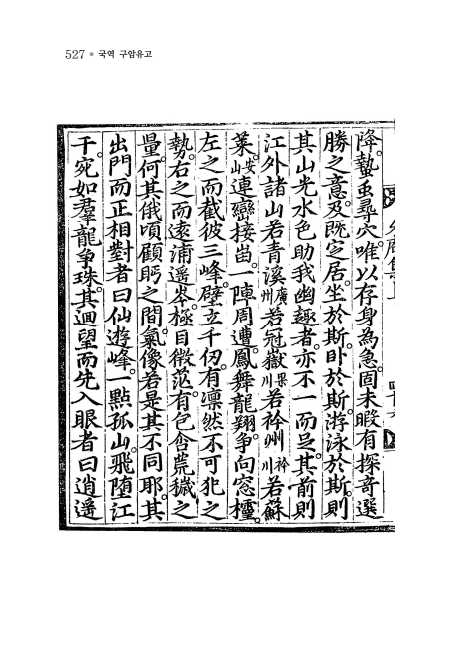 527 • 국역 구암유고
降。蟄虫尋穴。唯以存身爲急。固未暇有探奇選
勝之意。及旣定居。坐於斯。卧於斯。游泳於斯。則
其山光水色助我幽趣者。亦不一而足。其前則
江外諸山若青溪廣州若冠嶽果川若衿州衿川若蘇
萊。安山連巒接崮。一陣周遭。鳳舞龍翔。争向窓櫺。
左之而截彼三峰。壁立千仞。有凛然不可犯之
勢。右之而遠浦遥岑。極目微茫。有包含荒穢之
量。何其俄頃顧眄之間。氣像若是其不同耶。其
出門而正相對者曰仙遊峰。一點孤山。飛堕江
干。宛如羣龍争珠。其迴望而先入眼者曰逍遥